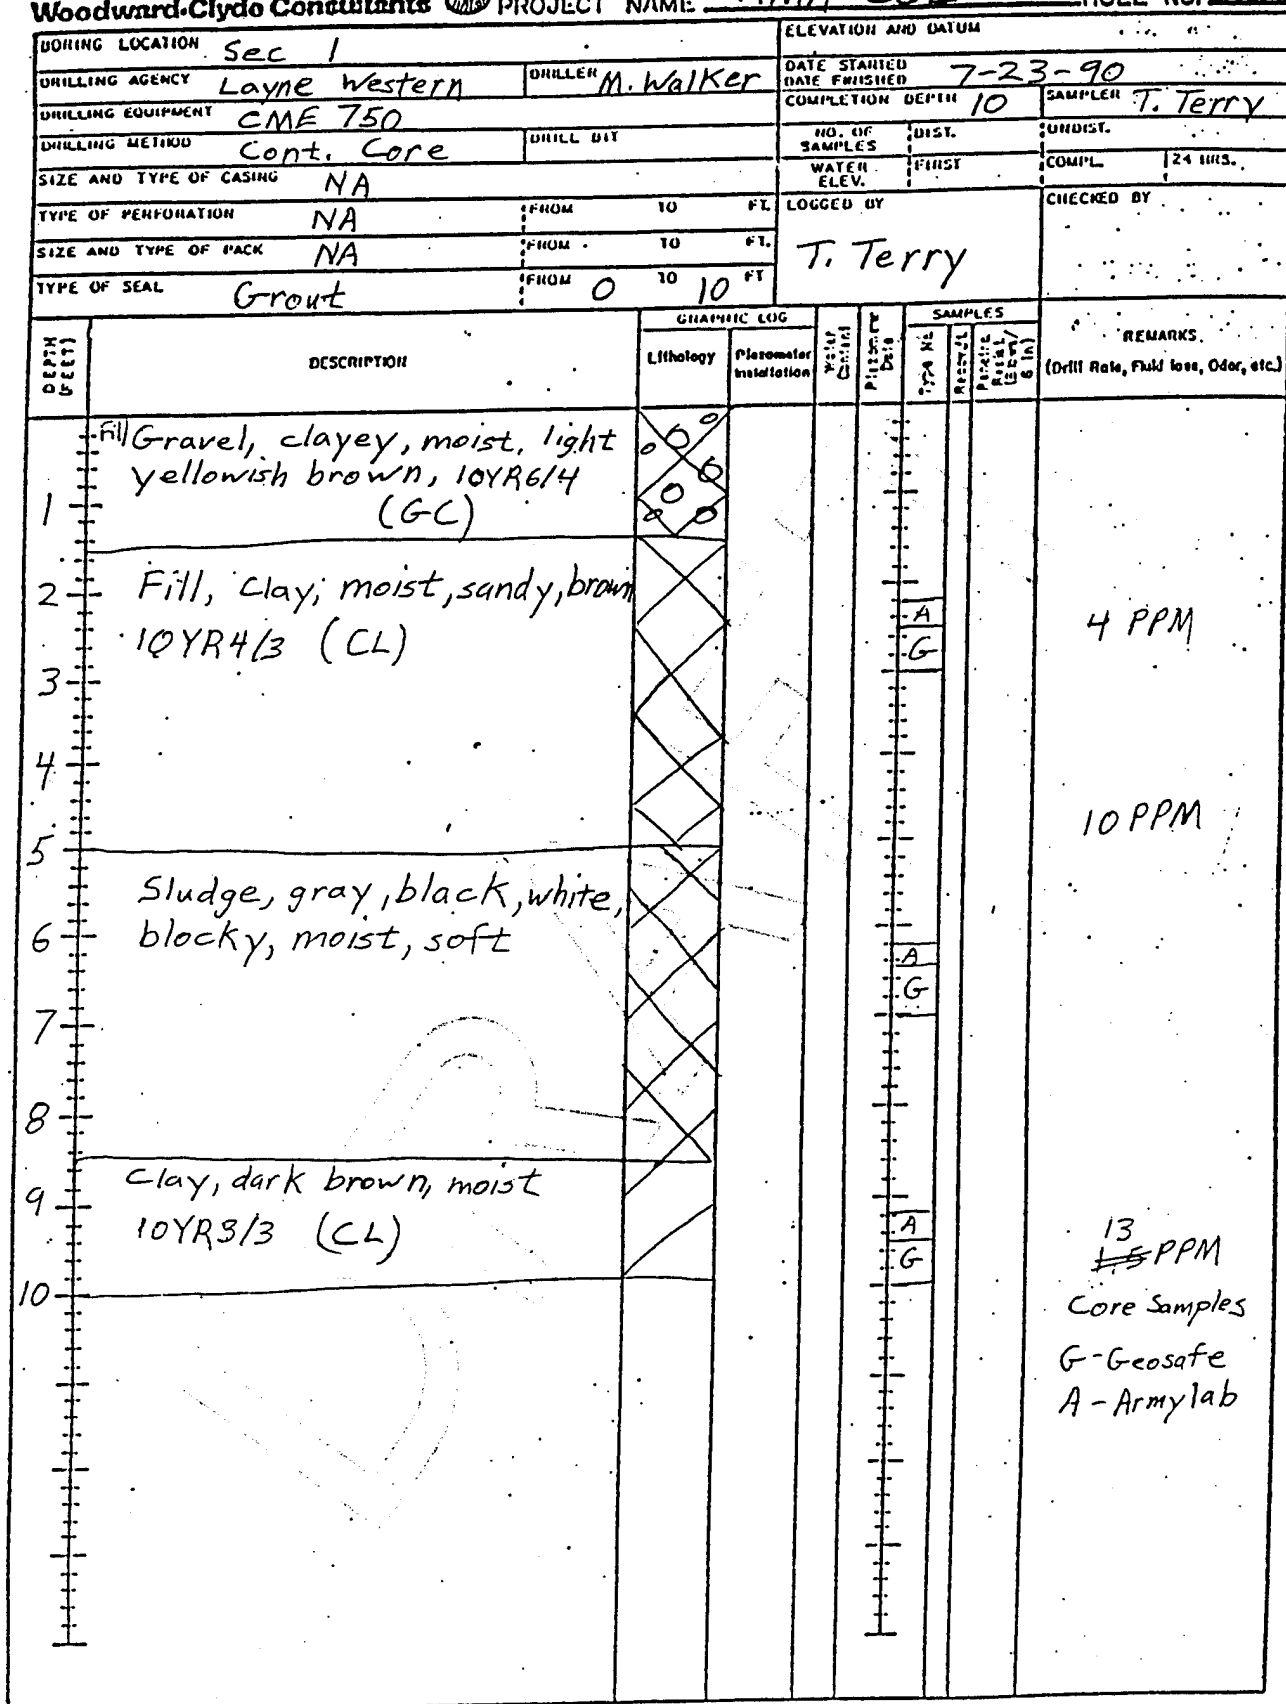 Woodward-Clyde Consultants PROJECT NAME
BORING LOCATION Sec 1
ELEVATION AND DATUM
DRILLING AGENCY Layne Western
DRILLER M. Walker
DATE STARTED
DATE FINISHED 7-23-90
DRILLING EQUIPMENT CME 750
COMPLETION DEPTH 10
SAMPLER T. Terry
DRILLING METHOD Cont. Core
DRILL BIT
NO. OF SAMPLES
DIST.
UNDIST.
SIZE AND TYPE OF CASING NA
WATER ELEV.
FIRST
COMPL.
24 HRS.
TYPE OF PERFORATION NA
FROM TO FT.
LOGGED BY
CHECKED BY
SIZE AND TYPE OF PACK NA
FROM TO FT.
T. Terry
TYPE OF SEAL Grout
FROM 0 TO 10 FT
DEPTH (FEET)
DESCRIPTION
GRAPHIC LOG
Lithology
Piezometer Installation
Water Content
SAMPLES
Type No.
REMARKS
(Drill Rate, Fluid loss, Odor, etc.)
Fill Gravel, clayey, moist, light
yellowish brown, 10YR6/4
1
(GC)
2
Fill, Clay, moist, sandy, brown
A
4 PPM
10YR4/3 (CL)
G
3
4
10 PPM
5
Sludge, gray, black, white,
6
blocky, moist, soft
A
G
7
8
Clay, dark brown, moist
9
10YR3/3 (CL)
A
13
G
1.5 PPM
10
Core Samples
G-Geosafe
A-Army lab